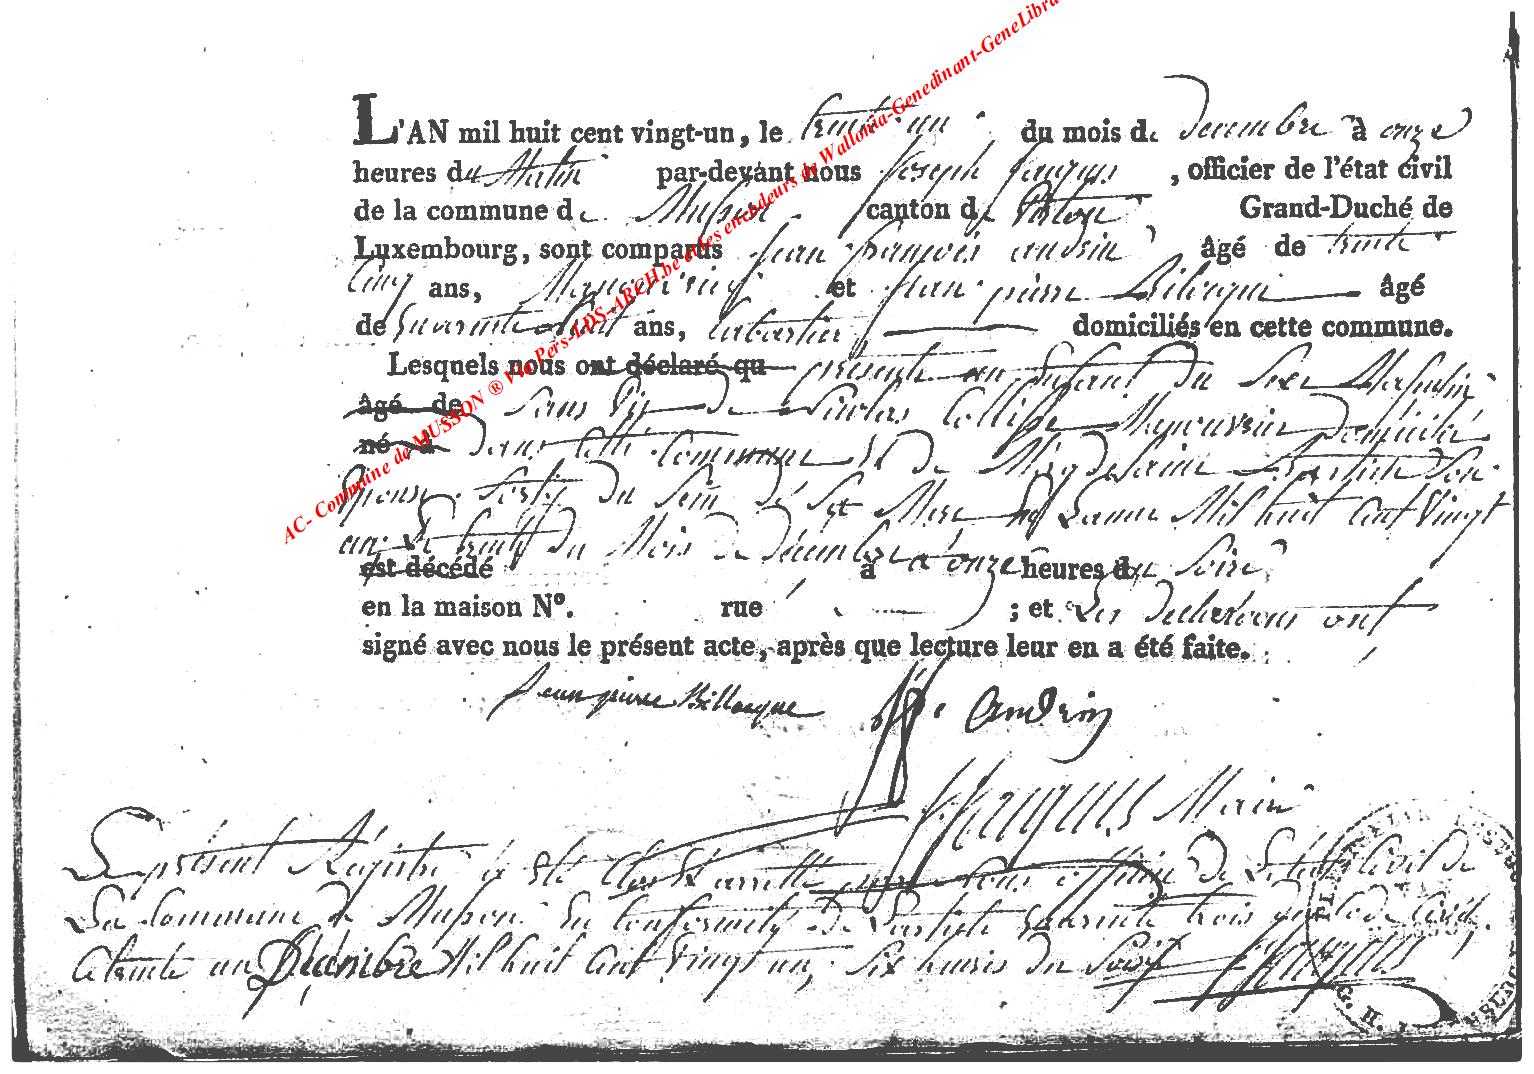 L'AN mil huit cent vingt-un, le trente un du mois de decembre à onze
heures du Matin par-devant nous Joseph Jacques, officier de l'état civil
de la commune de Musson canton de Virton Grand-Duché de
Luxembourg, sont comparus Jean françois andrin âgé de trente
Cinq ans, et Jean pierre Bilocque âgé
de ans, Cabartier domiciliés en cette commune.
Lesquels nous ont déclaré qu presente un Enfant du Sexe Masculin
âgé de Sans Vie de Nicolas Collige Manouvrier Domicilié
né à dans Cette Commune Et de Magdelaine Son
Epouse Sortis du Sein de Sa Mere Lanné Mil huit Cent Vingt
un Le trente du Mois de decembre
est décédé à onze heures du Soire
en la maison N°. rue ; et Les declarans ont
signé avec nous le présent acte, après que lecture leur en a été faite.
Jean pierre Billocque Andrin
Jacques Maire
Le présent Registre a Eté Clos Et arretté par Nous officier de Letat Civil de
La Commune de Musson En Conformité de Larticle quarante trois du Code Civil,
a trente un Décembre Mil huit Cent Vingt un, Six heures du Soir Jacques
AC- Commune de MUSSON ® Via Pers-LDS-ARCH.be et les encodeurs de Wallonia-Genedinant-GeneLibra